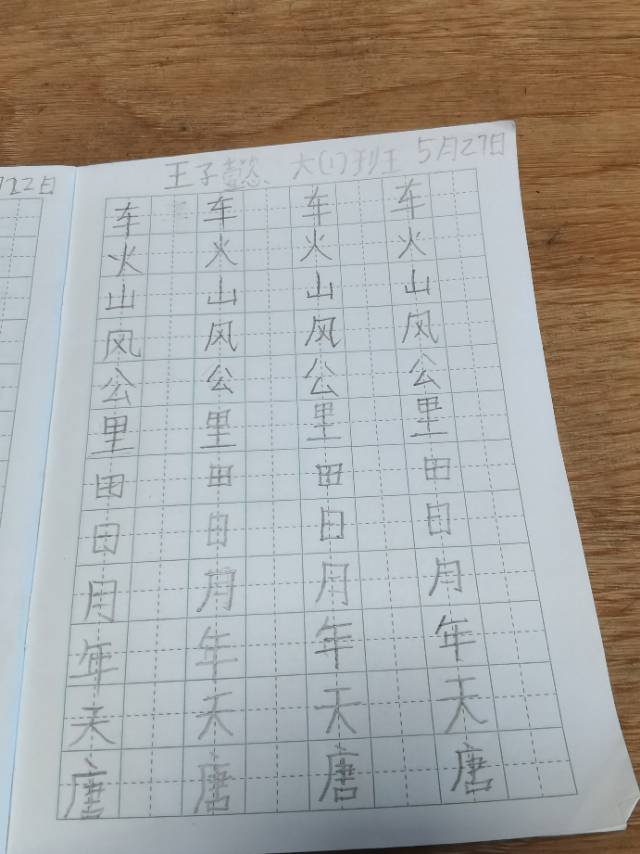 月22日
王子懿 大(1)班 5月27日
车 车 车 车
火 火 火 火
山 山 山 山
风 风 风 风
公 公 公 公
里 里 里 里
田 田 田 田
日 日 日 日
月 月 月 月
年 年 年 年
天 天 天 天
唐 唐 唐 唐